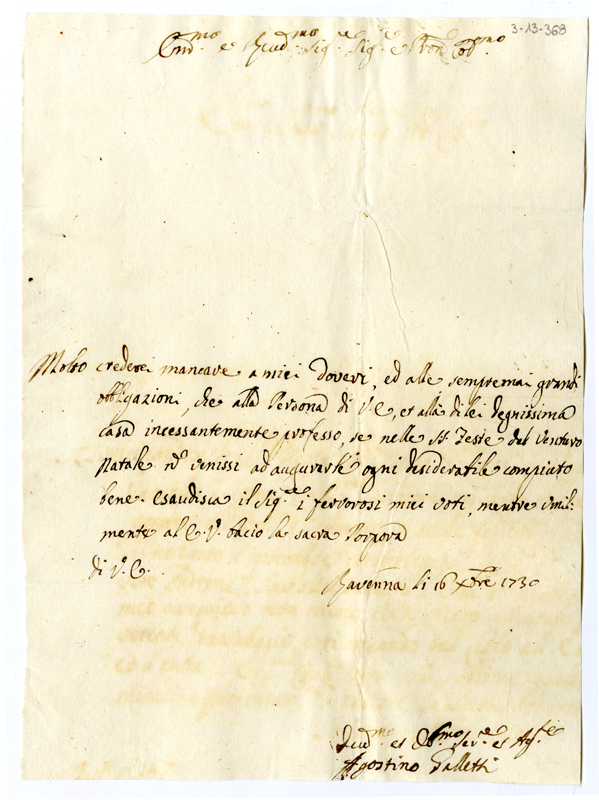 3-13-368
Em.mo e Reud.mo Sig.re Sig.re e Pron Col.mo
Molto crederei mancare a miei doveri, ed alle sempremai grandi
obbligazioni, che alla Persona di V.E., et alla di lei degnissima
casa incessantemente professo, se nelle SS. Feste del venturo
Natale nõ venissi ad augurarle ogni desiderabile compiuto
bene. Esaudisca il Sig.re i fervorosi miei voti, mentre umil:
mente al E.V. bacio la sacra Porpora
di V.E.
Ravenna li 16 Xbre 1730
Obb.mo Ser.e et
Agostino Galletti